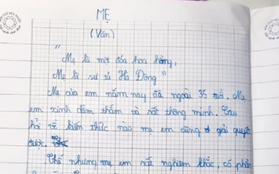 MẸ
(Văn)
"
Mẹ là một đóa hoa hồng,
Mẹ là sư tử Hà Đông"
Mẹ của em năm nay đã ngoài 35 rồi. Mẹ
em xinh đằm thắm và rất thông minh.
hỏi về kiến thức nào mẹ em cũng giải quyết
được.
Thế nhưng mẹ em rất nghiêm khắc, có phần